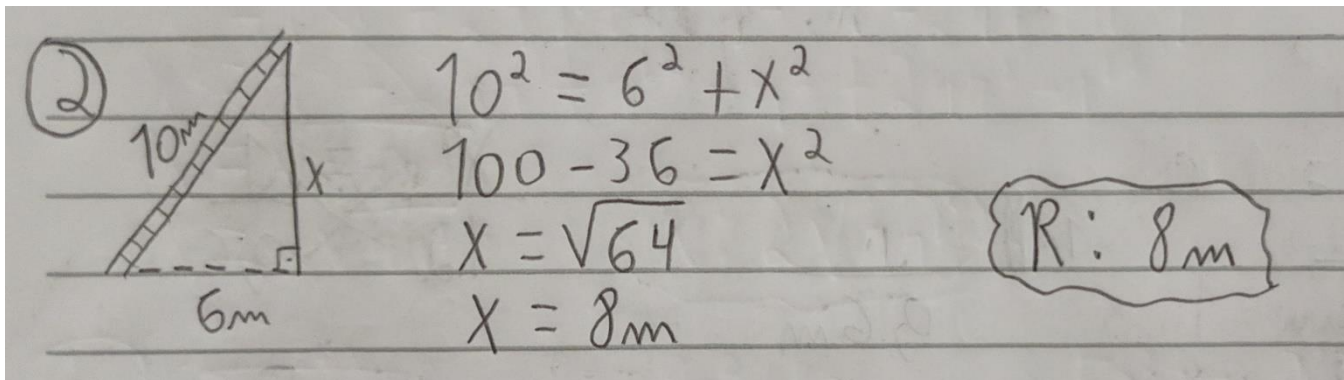 2
10m
x
6m
10² = 6² + x²
100 - 36 = x²
x = √64
x = 8m
R: 8m